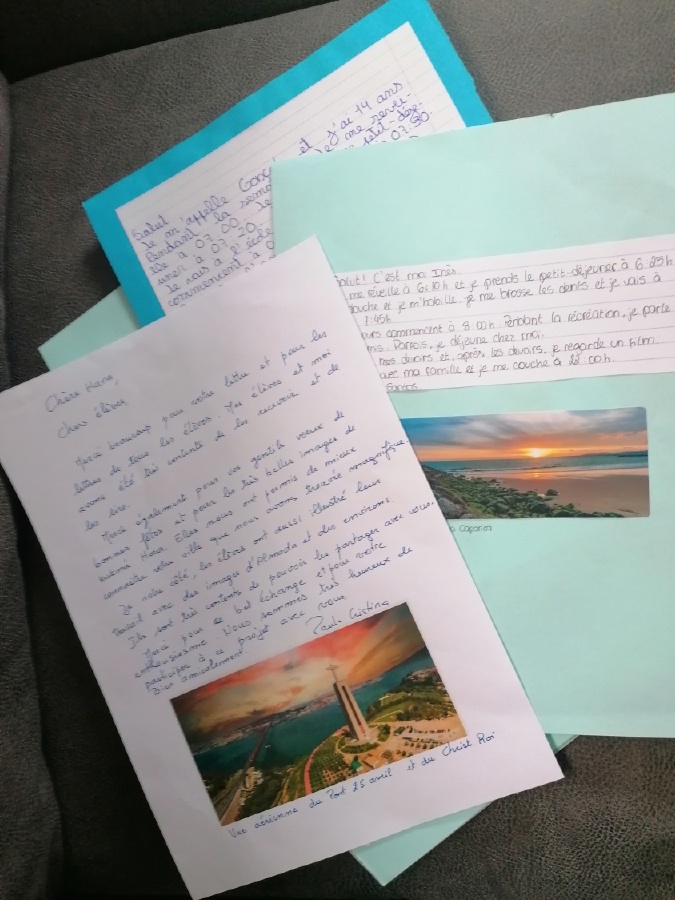 Salut
Je m'appelle Gonç et j'ai 14 ans
Pendant la sema je me révei-
lle à 07.00. Je petit-déje-
uner à 07.20. 07.30.
Je vais à l'école
commencent à 0
Salut! C'est moi Inês.
me réveille à 6:10h et je prends le petit-déjeuner à 6:25h
douche et je m'habille. je me brosse les dents et je vais à
7:45h
ours commencent à 8:00h. Pendant la récréation, je parle
mis. Parfois, je déjeune chez moi.
mes devoirs et, après les devoirs, je regarde un film.
avec ma famille et je me couche à :00h.
Santos
Caparica
Chère
chers élèves,
Merci beaucoup pour votre lettre et pour les
lettres de tous les élèves. Mes élèves et moi
avons été très contents de les recevoir et de
les lire.
Merci également pour vos gentils voeux de
bonnes fêtes et pour les très belles images de
Elles nous ont permis de mieux
connaître votre ville que nous avons trouvée magnifique.
De notre côté, les élèves ont aussi illustré leur
travail avec des images d'Almada et des environs.
Ils sont très contents de pouvoir les partager avec vous.
Merci pour ce bel échange et pour votre
enthousiasme. Nous sommes très heureux de
participer à ce projet avec vous.
Bien amicalement
Paula Cristina
Vue aérienne du Pont 25 avril et du Christ Roi